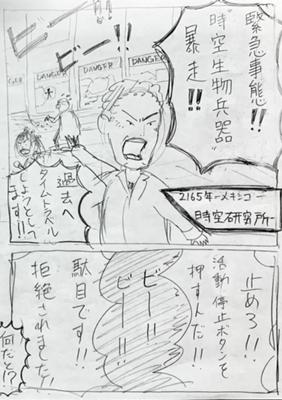 緊急事態!!
"時空生物兵器"
暴走!!
ビー!!
ビー!!
DANGER
DANGER
DANGER
過去へ
タイムトラベル
しようとしてい
ます!!
2165年-メキシコ-
時空研究所-
止めろ!!
活動停止ボタンを
押すんだ!!
ビー!!
ビー!!
駄目です!!
拒絶されました!
何だと!?